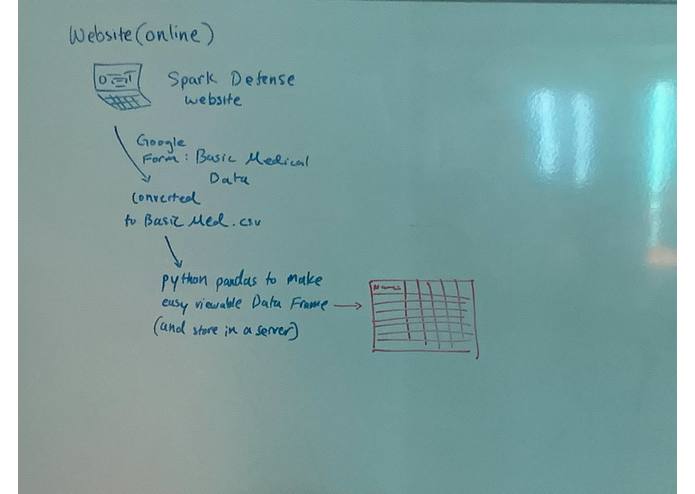 Website (online)
Spark Defense
website
Google
Form: Basic Medical
Data
converted
to Basic Med.csv
python pandas to make
easy viewable Data Frame
(and store in a server)